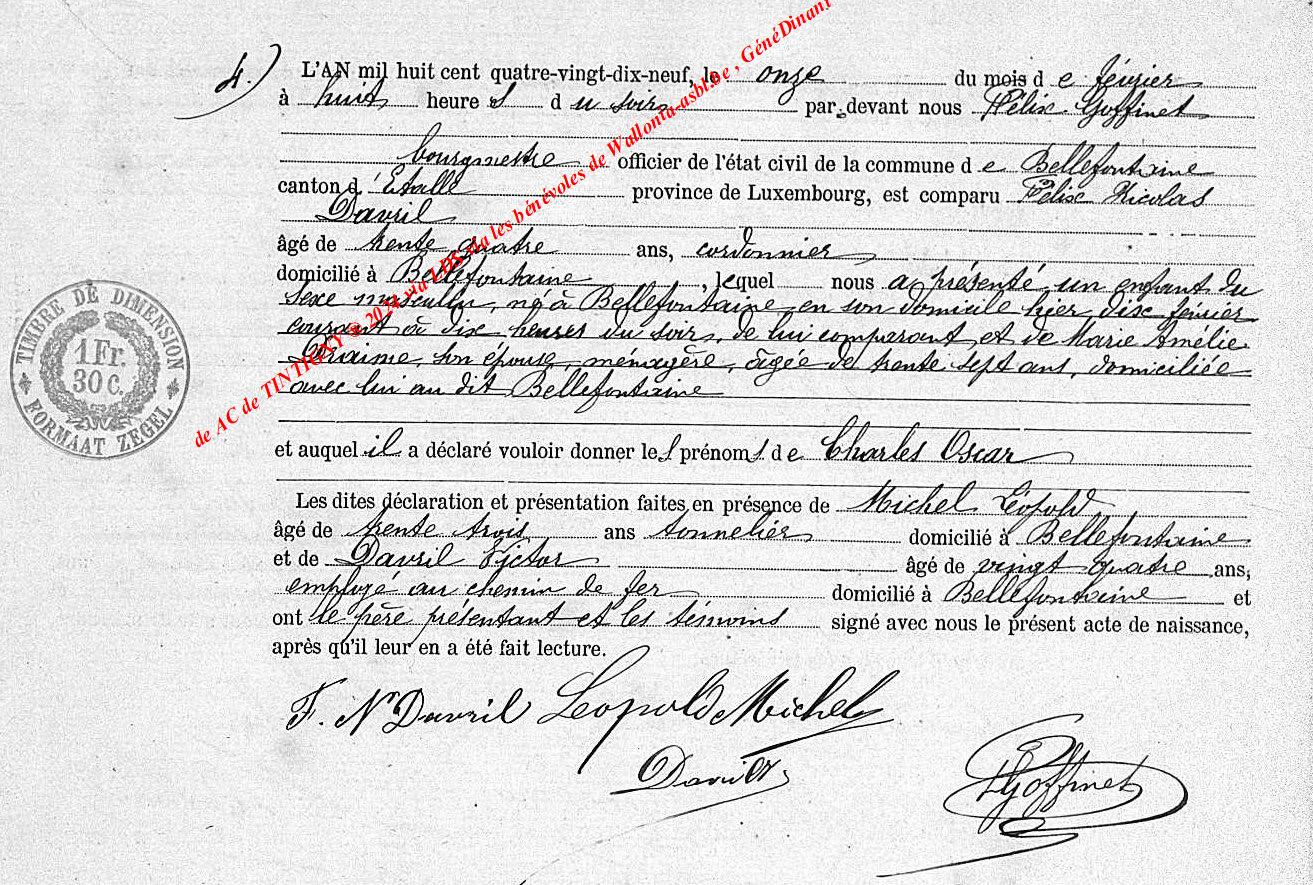 4.) L'AN mil huit cent quatre-vingt-dix-neuf, le onze du mois de février
à huit heures du soir par devant nous Félix Goffinet
bourgmestre officier de l'état civil de la commune de Bellefontaine
canton d'Etalle province de Luxembourg, est comparu Félix Nicolas
Davril
âgé de trente quatre ans, cordonnier
domicilié à Bellefontaine, lequel nous a présenté un enfant du
sexe masculin, né à Bellefontaine en son domicile hier dix février
courant à dix heures du soir, de lui comparant et de Marie Amélie
son épouse, ménagère, âgée de trente sept ans, domiciliée
avec lui au dit Bellefontaine
et auquel il a déclaré vouloir donner les prénoms de Charles Oscar
Les dites déclaration et présentation faites en présence de Michel Léopold
âgé de trente trois ans tonnelier domicilié à Bellefontaine
et de Davril Victor âgé de vingt quatre ans,
employé au chemin de fer domicilié à Bellefontaine et
ont le père présentant et les témoins signé avec nous le présent acte de naissance,
après qu'il leur en a été fait lecture.
F. N Davril Leopold Michel
Davril
Goffinet
TIMBRE DE DIMENSION
1 Fr.
30 C.
FORMAAT ZEGEL
de AC de TINTIGNY © 2024 via LDS via les bénévoles de Wallonia-asbl.be, GénéDinant